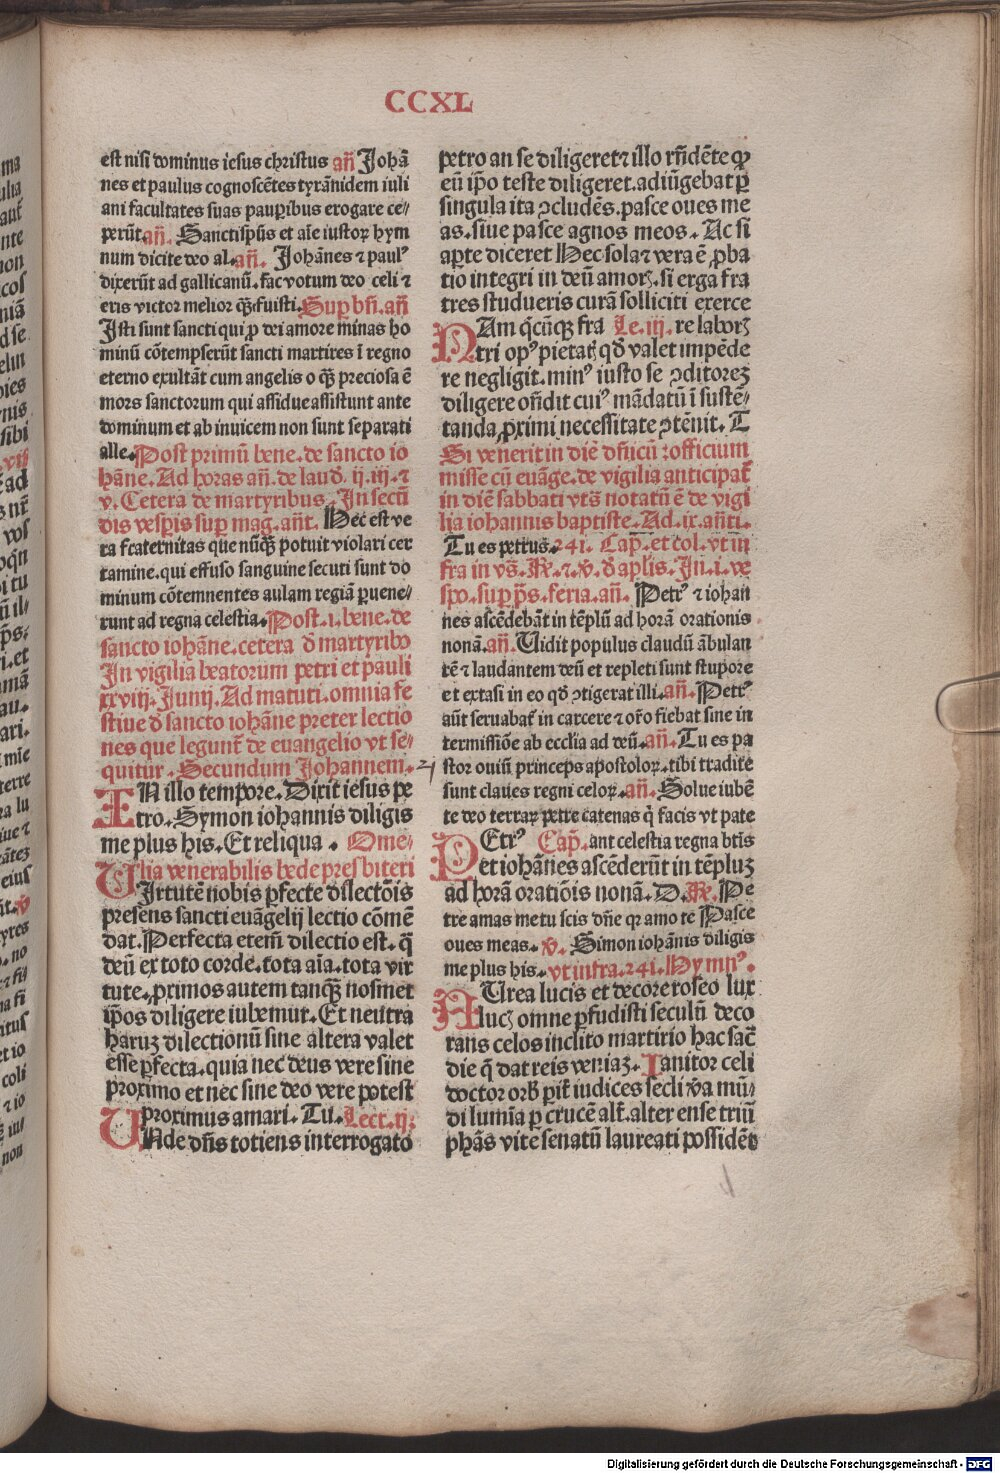 CCXL
est nisi dominus iesus christus añ Johā
nes et paulus cognoscētes tyrānidem iuli
ani facultates suas paupibus erogare ce/
perūt. añ. Sanctispūs et aīe iustoꝝ hym
num dicite deo al. añ. Johānes ⁊ paulꝰ
dixerūt ad gallicanū. fac votum deo celi ⁊
eris victor melior qȝ fuisti. Sup bñ. añ
Isti sunt sancti qui ꝓ dei amore minas ho
minū cōtempserūt sancti martires ī regno
eterno exultāt cum angelis o qȝ preciosa ē
mors sanctorum qui assidue assistunt ante
dominum et ab inuicem non sunt separati
alle. Post primū bene. de sancto io
hāne. Ad horas añ. de laud. ij. iij. ⁊
v. Cetera de martyribus. In secū
dis vespis sup mag. añt. Hec est ve
ra fraternitas que nūqȝ potuit violari cer
tamine. qui effuso sanguine secuti sunt do
minum cōtemnentes aulam regiā puene/
runt ad regna celestia. Post. i. bene. de
sancto iohāne. cetera d martyribꝰ
In vigilia beatorum petri et pauli
xxviij. Junij. Ad matuti. omnia fe
stiue d sancto iohāne preter lectio
nes que legunt̄ de euangelio vt se/
quitur. Secundum Johannem.
IN illo tempore. Dixit iesus pe
tro. Symon iohannis diligis
me plus his. Et reliqua. Ome/
lia venerabilis bede presbiteri
VIrtutē nobis pfecte dilectōis
presens sancti euāgelij lectio cōmē
dat. Perfecta etem̄ dilectio est. q̄
deū ex toto corde. tota aīa. tota vir
tute. ꝓximos autem tanqȝ nosmet
ip̄os diligere iubemur. Et neutra
haruȝ dilectionū sine altera valet
esse pfecta. quia nec deus vere sine
proximo et nec sine deo vere potest
proximus amari. Tu. Lect. ij.
VNde dñs totiens interrogato
petro an se diligeret ⁊ illo rñdēte ꝙ
eū ip̄o teste diligeret. adiūgebat p
singula ita ꝯcludēs. pasce oues me
as. siue pasce agnos meos. Ac si
apte diceret Hec sola ⁊ vera ē ꝓba
tio integri in deū amoꝝ. si erga fra
tres studueris curā solliciti exerce
NAm q̄cūqȝ fra Le. iij. re laboꝝ
tri opꝰ pietaꝭ qd̄ valet impēde
re negligit. minꝰ iusto se ꝯditoreȝ
diligere oñdit cuiꝰ mādatū ī sustē/
tanda ꝓximi necessitate ꝯtēnit. T
Si venerit in diē dñicū: officium
misse cū euāge. de vigilia anticipat̄
in diē sabbati vts̄ notatū ē de vigi
lia iohannis baptiste. Ad. ix. añti.
Tu es petrus. 241. Cap. et col. vt in
fra in vs̄. ℟. ⁊. ℣. d aplis. In. i. ve
spo. sup ps̄. feria. añ. Petrꝰ ⁊ iohan
nes ascēdebāt in tēplū ad horā orationis
nonā. añ. Uidit populus claudū ābulan
tē ⁊ laudantem deū et repleti sunt stupore
et extasi in eo qd̄ ꝯtigerat illi. añ. Petrꝰ
aūt seruabat̄ in carcere ⁊ or̄o fiebat sine in
termissiōe ab ecclia ad deū. añ. Tu es pa
stor ouiū princeps apostoloꝝ. tibi tradite
sunt claues regni celoꝝ. añ. Solue iubēn
te deo terraꝝ petre catenas q̄ facis vt pate
PEtrꝰ Cap. ant celestia regna btīs
et iohānes ascēderūt in tēpluȝ
ad horā oratiōis nonā. D. ℟. Pe
tre amas me tu scis dñe qꝛ amo te Pasce
oues meas. ℣. Simon iohānis diligis
me plus his. vt infra. 241. Hymnꝰ.
AUrea lucis et decore roseo lux
lucꝭ omne pfudisti seculū deco
rans celos inclito martirio hac sac̄
die q̄ dat reis veniaȝ. Ianitor celi
doctor orb pit̄ iudices secli va mū/
di lumīa p crucē alt̄. alter ense triū
phās vite senatū laureati possidēt